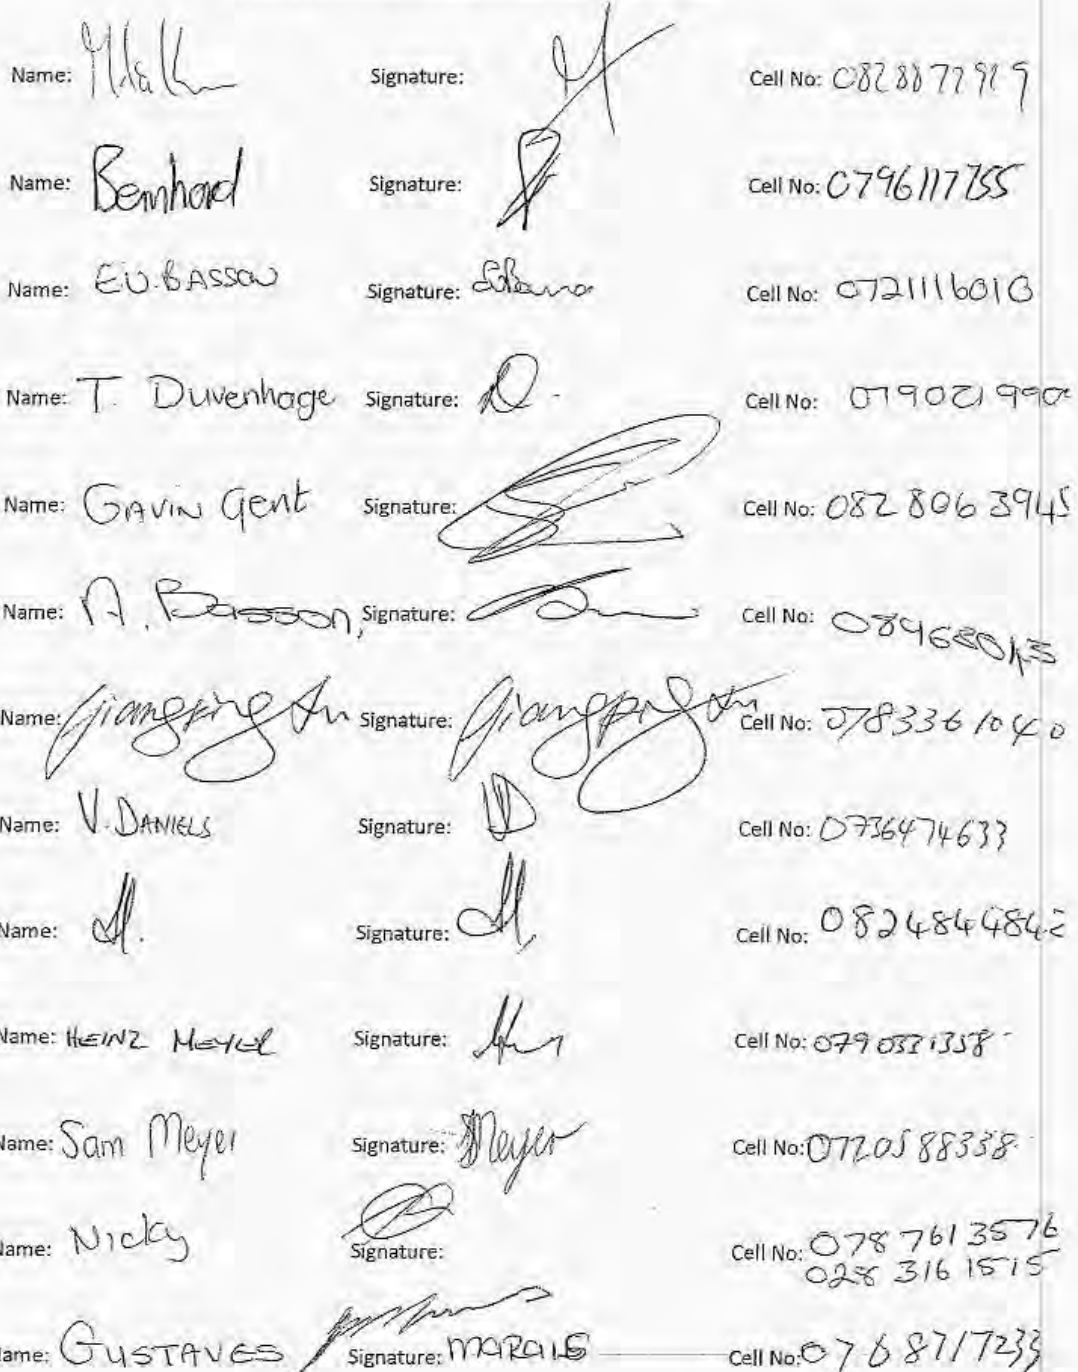 Name: Signature: Cell No: 0828877919
Name: Bernhard Signature: Cell No: 0796117755
Name: E.U. BASSON Signature: Cell No: 0721116010
Name: T. Duvenhage Signature: Cell No:
Name: GAVIN Gent Signature: Cell No: 082 806 3945
Name: A. Basson, Signature: Cell No:
Name: Signature: Cell No: 0783361040
Name: V. DANIELS Signature: VD Cell No: 0736474633
Name: Signature: Cell No: 0824844842
Name: HEINZ MEYER Signature: Cell No: 0790331358
Name: Sam Meyer Signature: SMeyer Cell No: 0720588338
Name: Nicky Signature: Cell No: 078 761 3576
028 316 1515
Name: GUSTAVES Signature: MARAIS Cell No: 0768717233